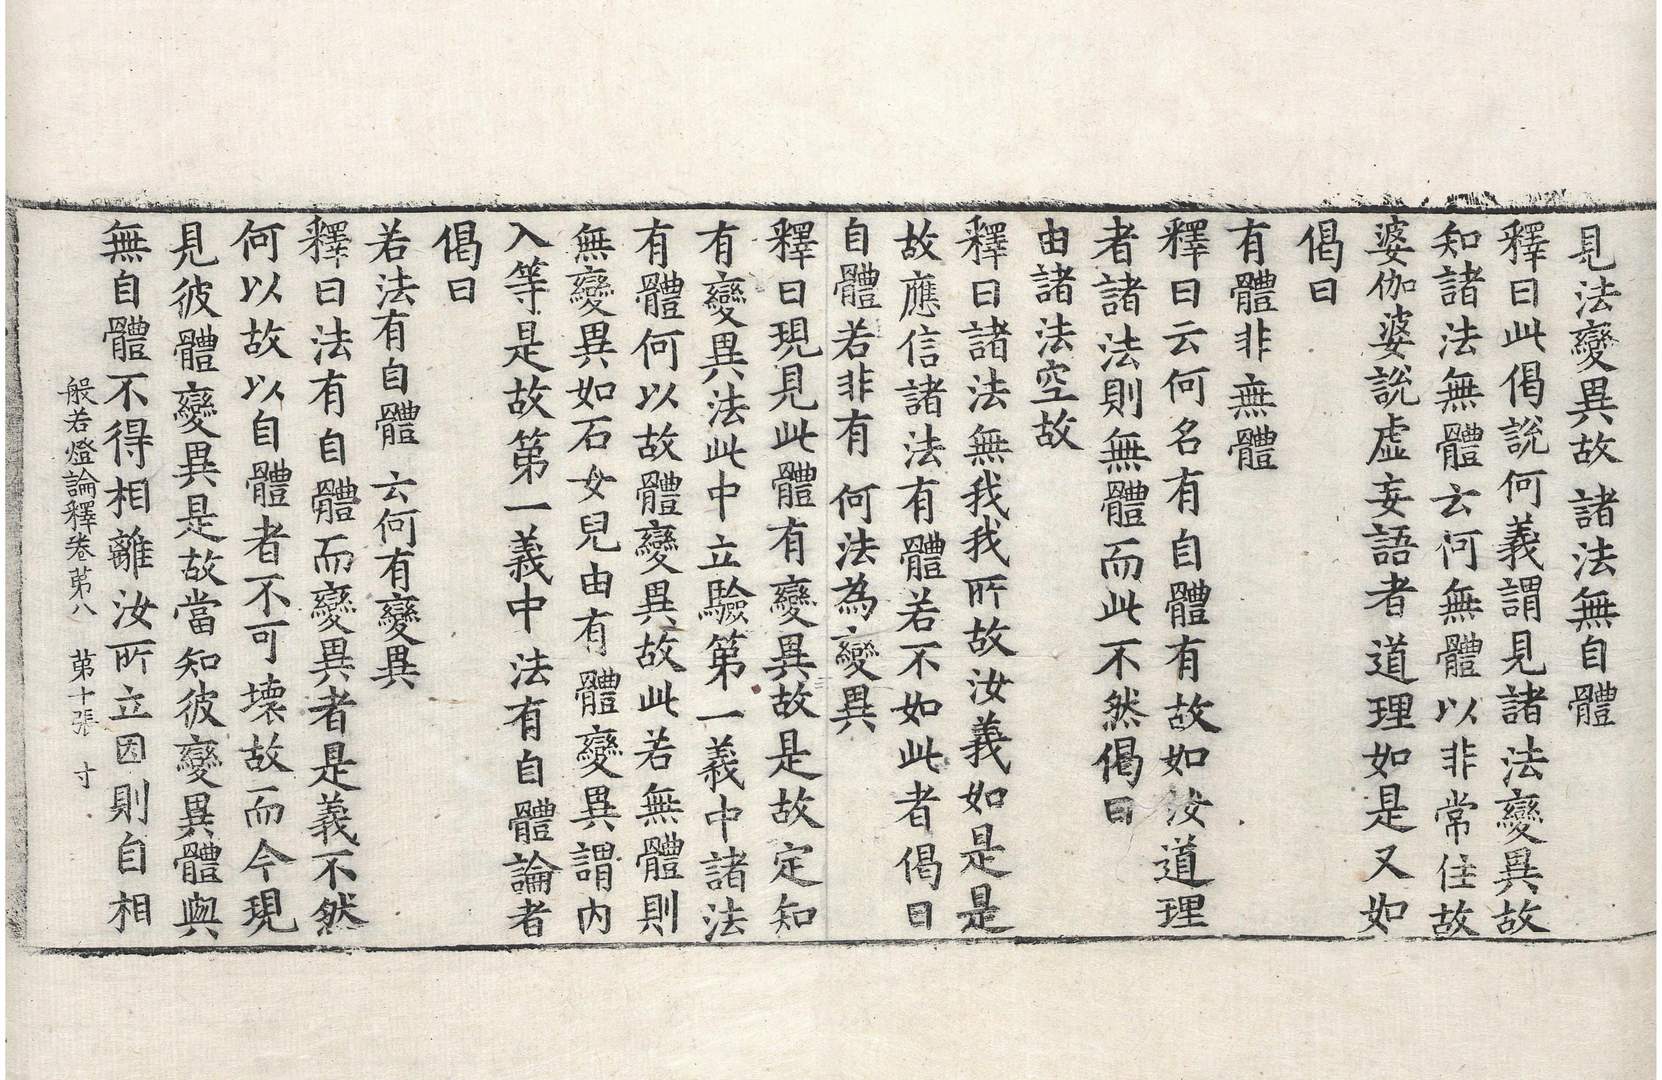 見法變異故 諸法無自體
釋曰此偈說何義謂見諸法變異故
知諸法無體云何無體以非常住故
婆伽婆說虛妄語者道理如是又如
偈曰
有體非無體
釋曰云何名有自體有故如汝道理
者諸法則無體而此不然偈曰
由諸法空故
釋曰諸法無我我所故汝義如是是
故應信諸法有體若不如此者偈曰
自體若非有 何法為變異
釋曰現見此體有變異故是故定知
有變異法此中立驗第一義中諸法
有體何以故體變異故此若無體則
無變異如石女兒由有體變異謂內
入等是故第一義中法有自體論者
偈曰
若法有自體 云何有變異
釋曰法有自體而變異者是義不然
何以故以自體者不可壞故而今現
見彼體變異是故當知彼變異體與
無自體不得相離汝所立因則自相
般若燈論釋卷第八 第十張 寸